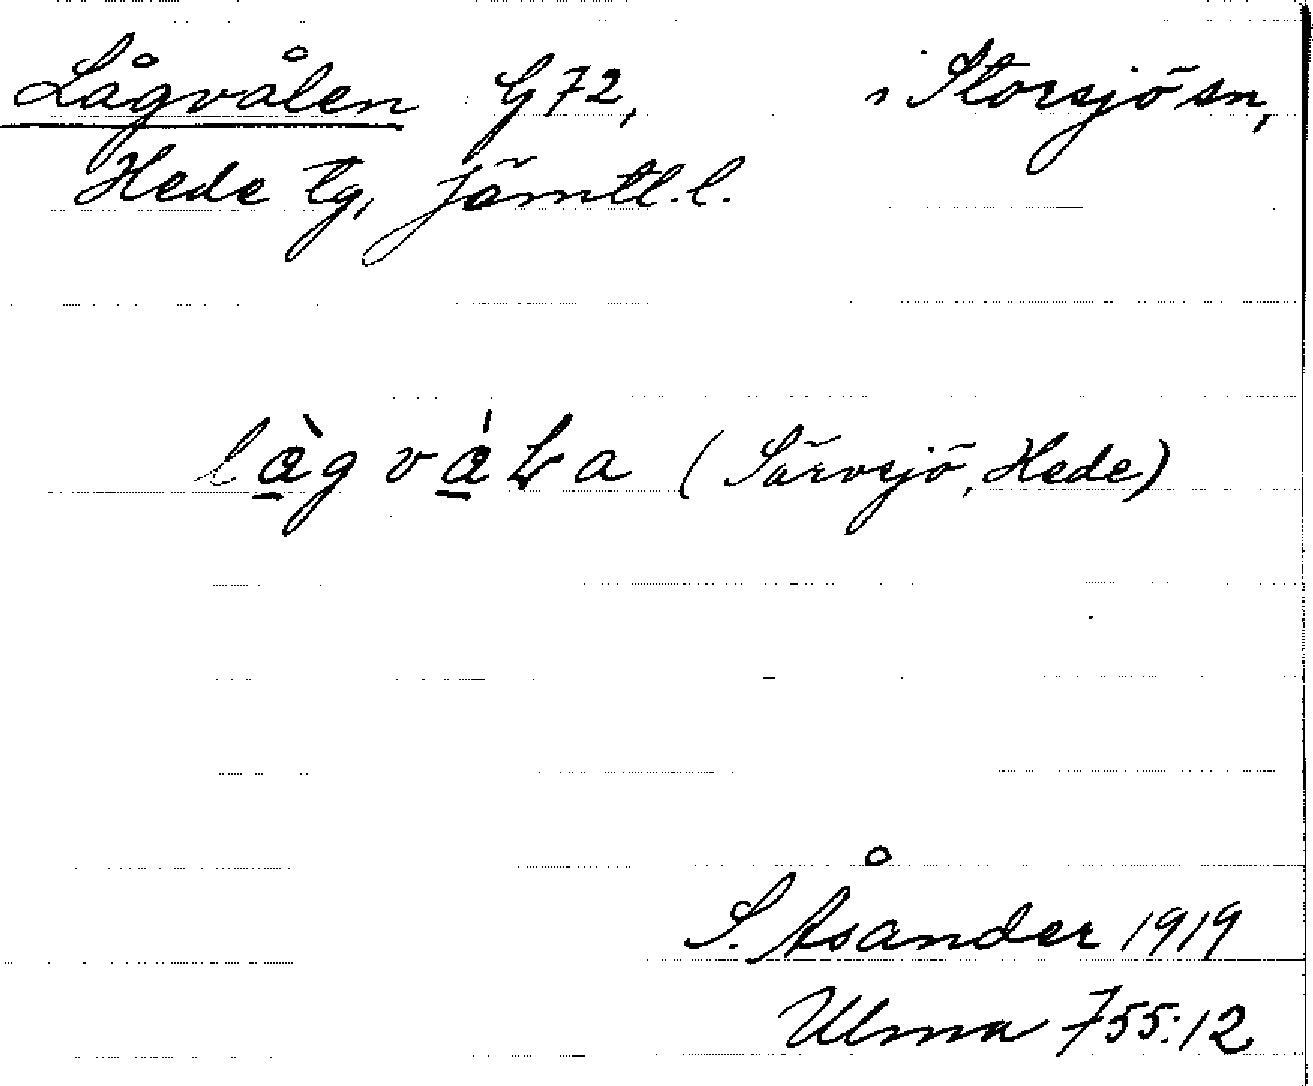 Lågvålen G72, i Storsjö sn,
Hede tg, Jämtl. l.
là̲g vá̲La (Särvsjö, Hede)
S. Åsander 1919
Ulma 755:12